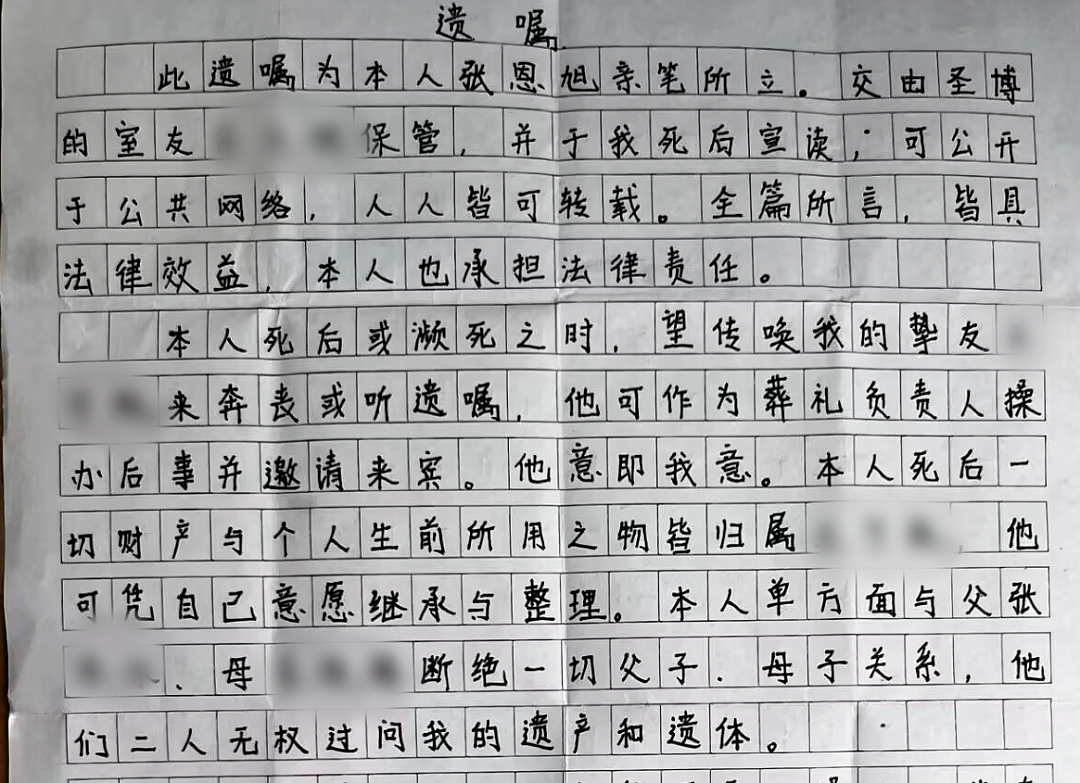 遗嘱
此遗嘱为本人张恩旭亲笔所立。交由圣博
的室友保管，并于我死后宣读；可公开
于公共网络，人人皆可转载。全篇所言，皆具
法律效益，本人也承担法律责任。
本人死后或濒死之时，望传唤我的挚友
来奔丧或听遗嘱，他可作为葬礼负责人操
办后事并邀请来宾。他意即我意。本人死后一
切财产与个人生前所用之物皆归属，他
可凭自己意愿继承与整理。本人单方面与父张
、母断绝一切父子、母子关系，他
们二人无权过问我的遗产和遗体。